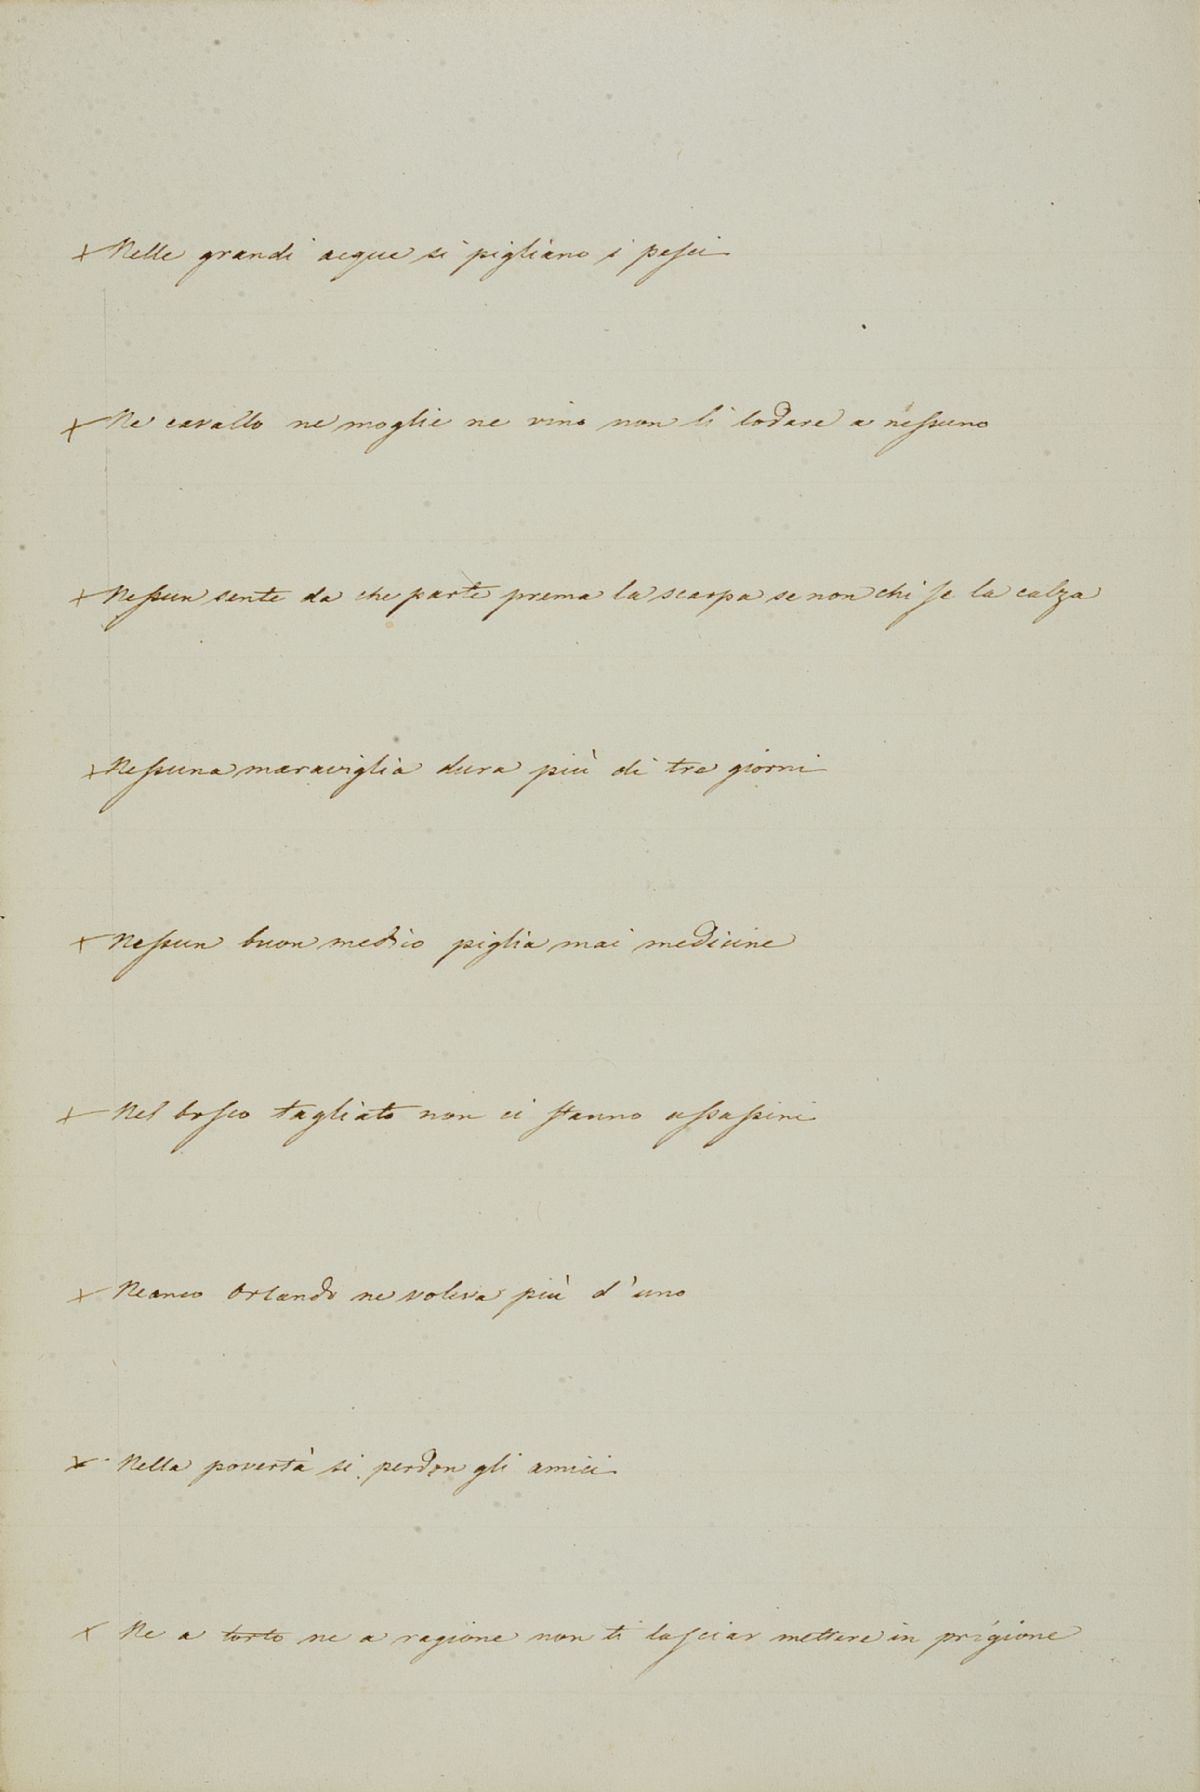 + Nelle grandi acque si pigliano i pesci
+ Ne cavallo ne moglie ne vino non li lodare a nessuno
+ Nessun sente da che parte prema la scarpa se non chi se la calza
+ Nessuna maraviglia dura più di tre giorni
+ Nessun buon medico piglia mai medicine
+ Nel bosco tagliato non ci stanno assassini
+ Neanco Orlando ne voleva più d'uno
+ Nella povertà si perdon gli amici
+ Ne a torto ne a ragione non ti lasciar mettere in prigione